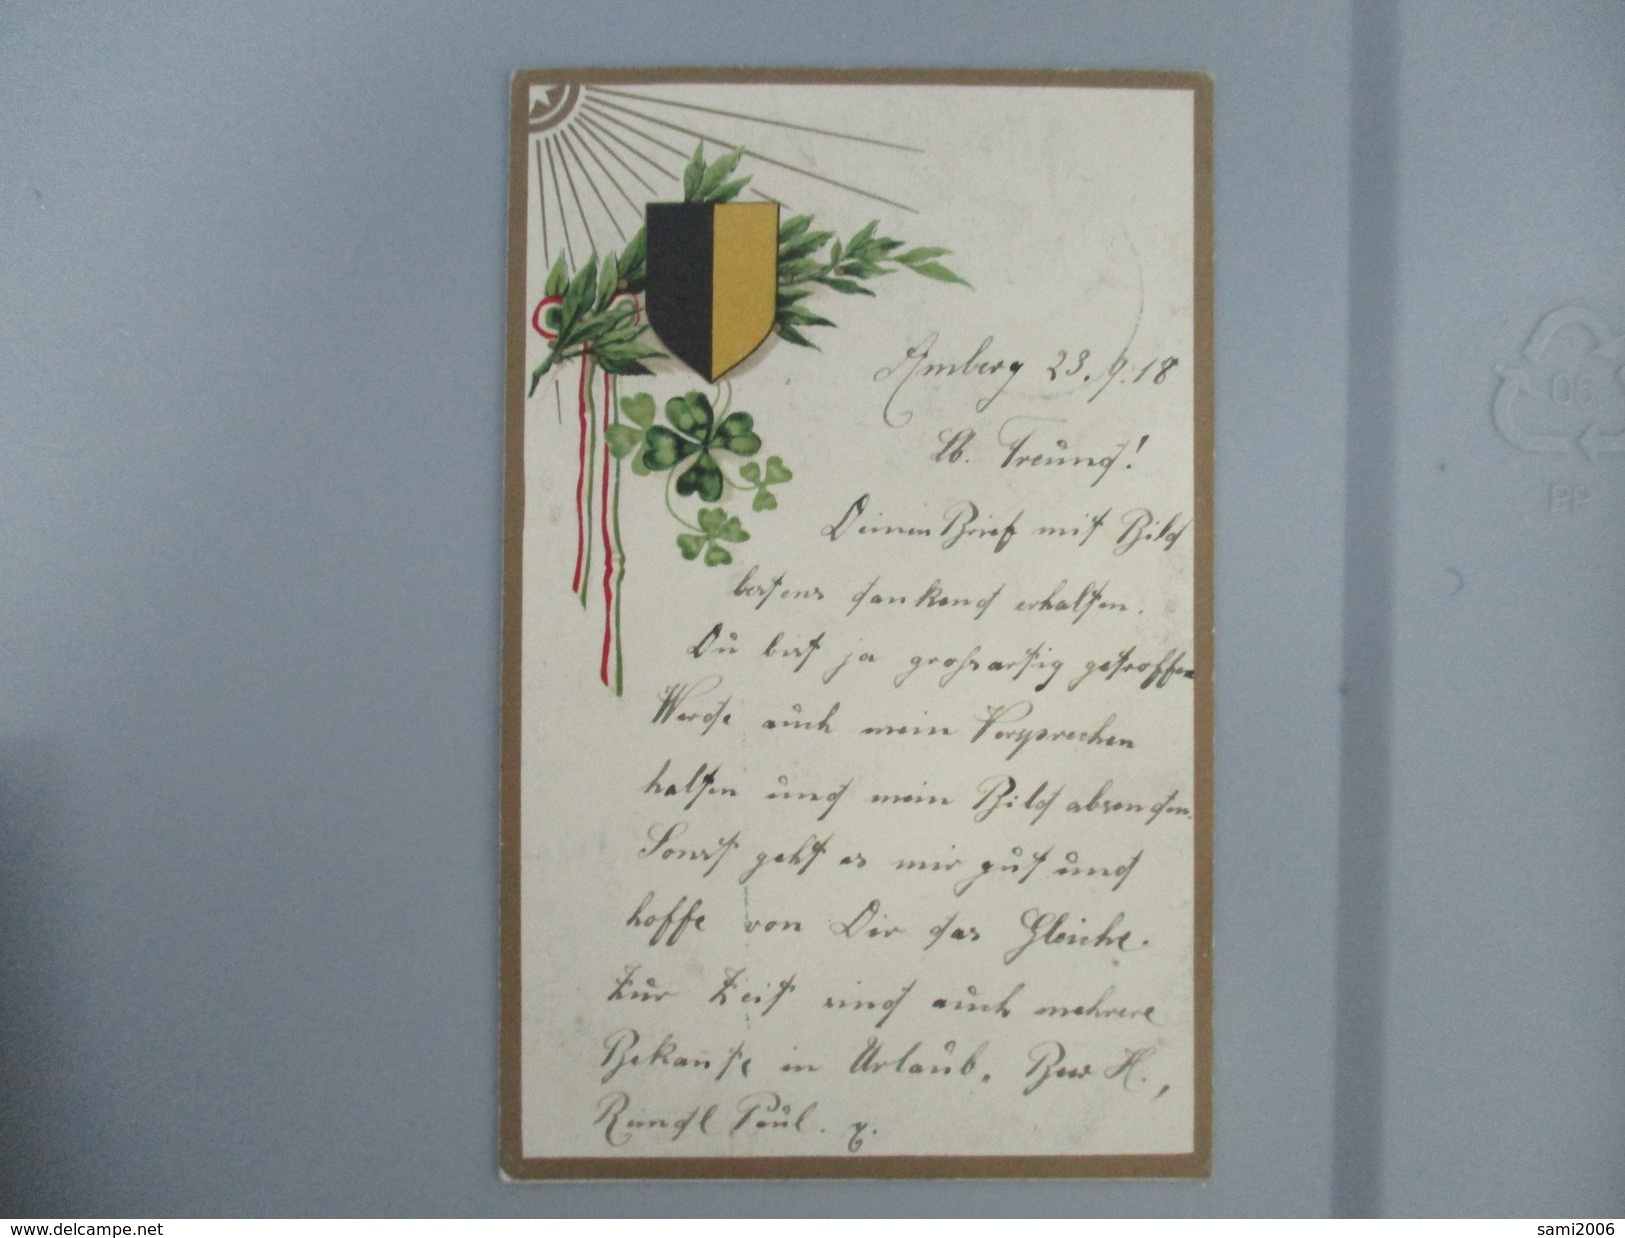 Amberg 23.9.18
Lb. Freund!
Deinen Brief mit Bild
bestens dankend erhalten.
Du bist ja großartig getroffen
Werde auch mein Versprechen
halten und mein Bild absenden.
Sonst geht es mir gut und
hoffe von Dir das Gleiche.
Zur Zeit sind auch mehrere
Bekannte in Urlaub. H.,
Paul.
06
PP
www.delcampe.net
sami2006